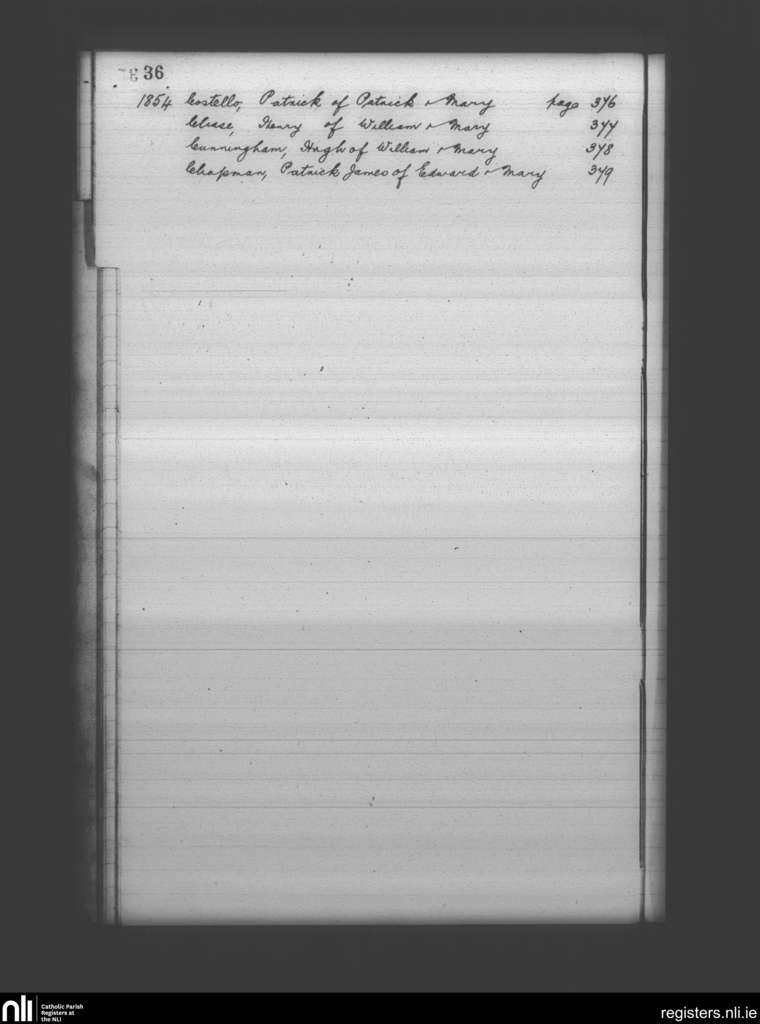 36
1854 Costello, Patrick of Patrick & Mary page 376
Chase, Henry of William & Mary 377
Cunningham, Hugh of William & Mary 378
Chapman, Patrick James of Edward & Mary 379
nli Catholic Parish Registers at the NLI
registers.nli.ie